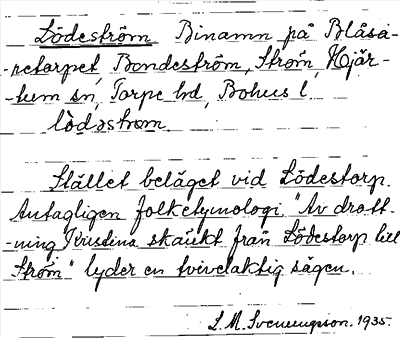 Lödeström Binamn på Blåsa-
-retorpet, Bondeström, Ström, Hjär-
-tum sn, Torpe hd, Bohus l.
lòdəstrøm.
Stället beläget vid Lödestorp.
Antagligen folketymologi "Av drott-
-ning Kristina skänkt från Lödestorp till
Ström" lyder en tvivelaktig sägen.
L. M. Svenungsson. 1935.